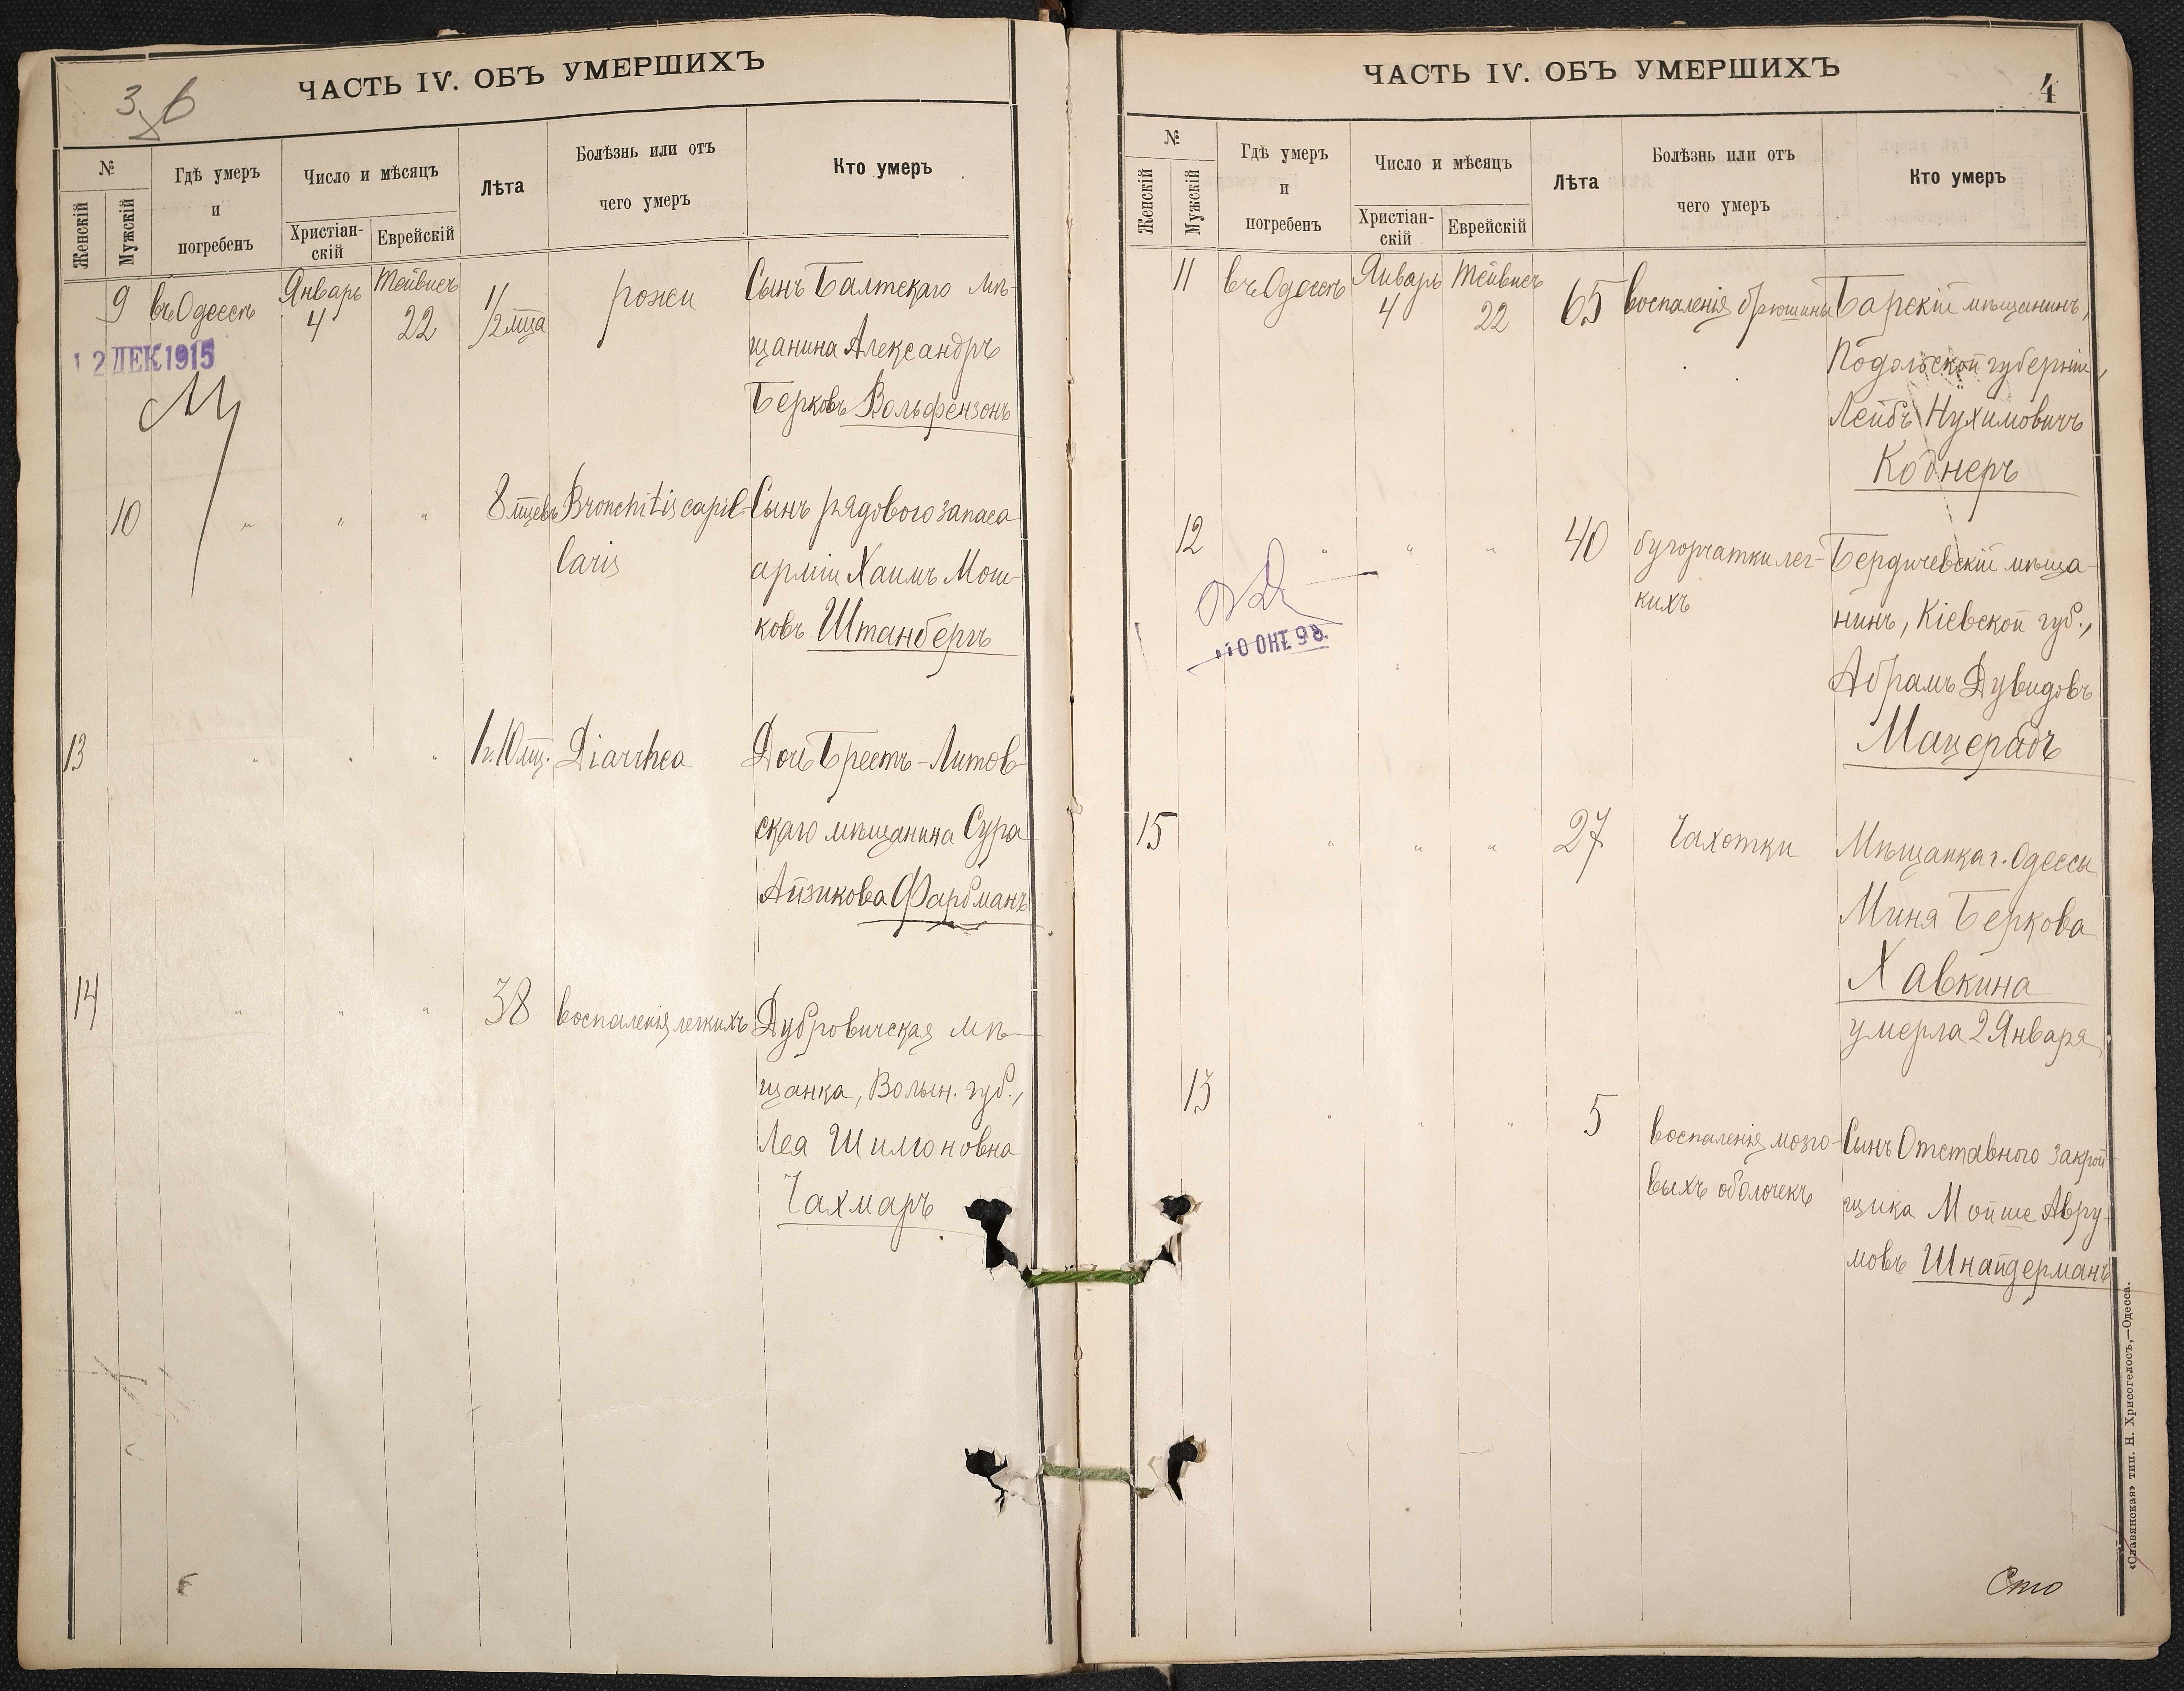 ЧАСТЬ IV. ОБЪ УМЕРШИХЪ
№
Женскій
Мужскій
Гдѣ умеръ
и
погребенъ
Число и мѣсяцъ
Христіан-
скій
Еврейскій
Лѣта
Болѣзнь или отъ
чего умеръ
Кто умеръ
9 въ Одессѣ Январь 4 Тейвисъ 22 1/2 мца рожи Сынъ Балтскаго мѣ-
щанина Александръ
Берковъ Вольфензонъ
12 ДЕК 1915
10 " " " 8 мцевъ Bronchitis capil- Сынъ рядового запаса
laris арміи Хаимъ Мош-
ковъ Штанбергъ
13 " " " 1 г. 10 мц. Diarrhea Дочь Брестъ-Литов-
скаго мѣщанина Сура
Айзикова Фарбманъ
14 " " " 38 воспаленія легкихъ Дубровичская мѣ-
щанка, Волын. губ.,
Лея Шимоновна
Чахмаръ
ЧАСТЬ IV. ОБЪ УМЕРШИХЪ
4
№
Женскій
Мужскій
Гдѣ умеръ
и
погребенъ
Число и мѣсяцъ
Христіан-
скій
Еврейскій
Лѣта
Болѣзнь или отъ
чего умеръ
Кто умеръ
11 въ Одессѣ Январь 4 Тейвисъ 22 65 воспаленія брюшины Барскій мѣщанинъ,
Подольской губерніи,
Лейбъ Нухимовичъ
Коднеръ
12 " " " 40 бугорчатки лег- Бердичевскій мѣща-
кихъ нинъ, Кіевской губ.,
Абрамъ Дувидовъ
Мацерабъ
15 " " " 27 Чахотки Мѣщанка г. Одессы
Миня Беркова
Хавкина
умерла 2 Января
13 " " " 5 воспаленія мозго- Сынъ Отставного закрой-
выхъ оболочекъ щика Мойше Авру-
мовъ Шнайдерманъ
«Славянская» тип. Н. Хрисогелосъ,—Одесса.